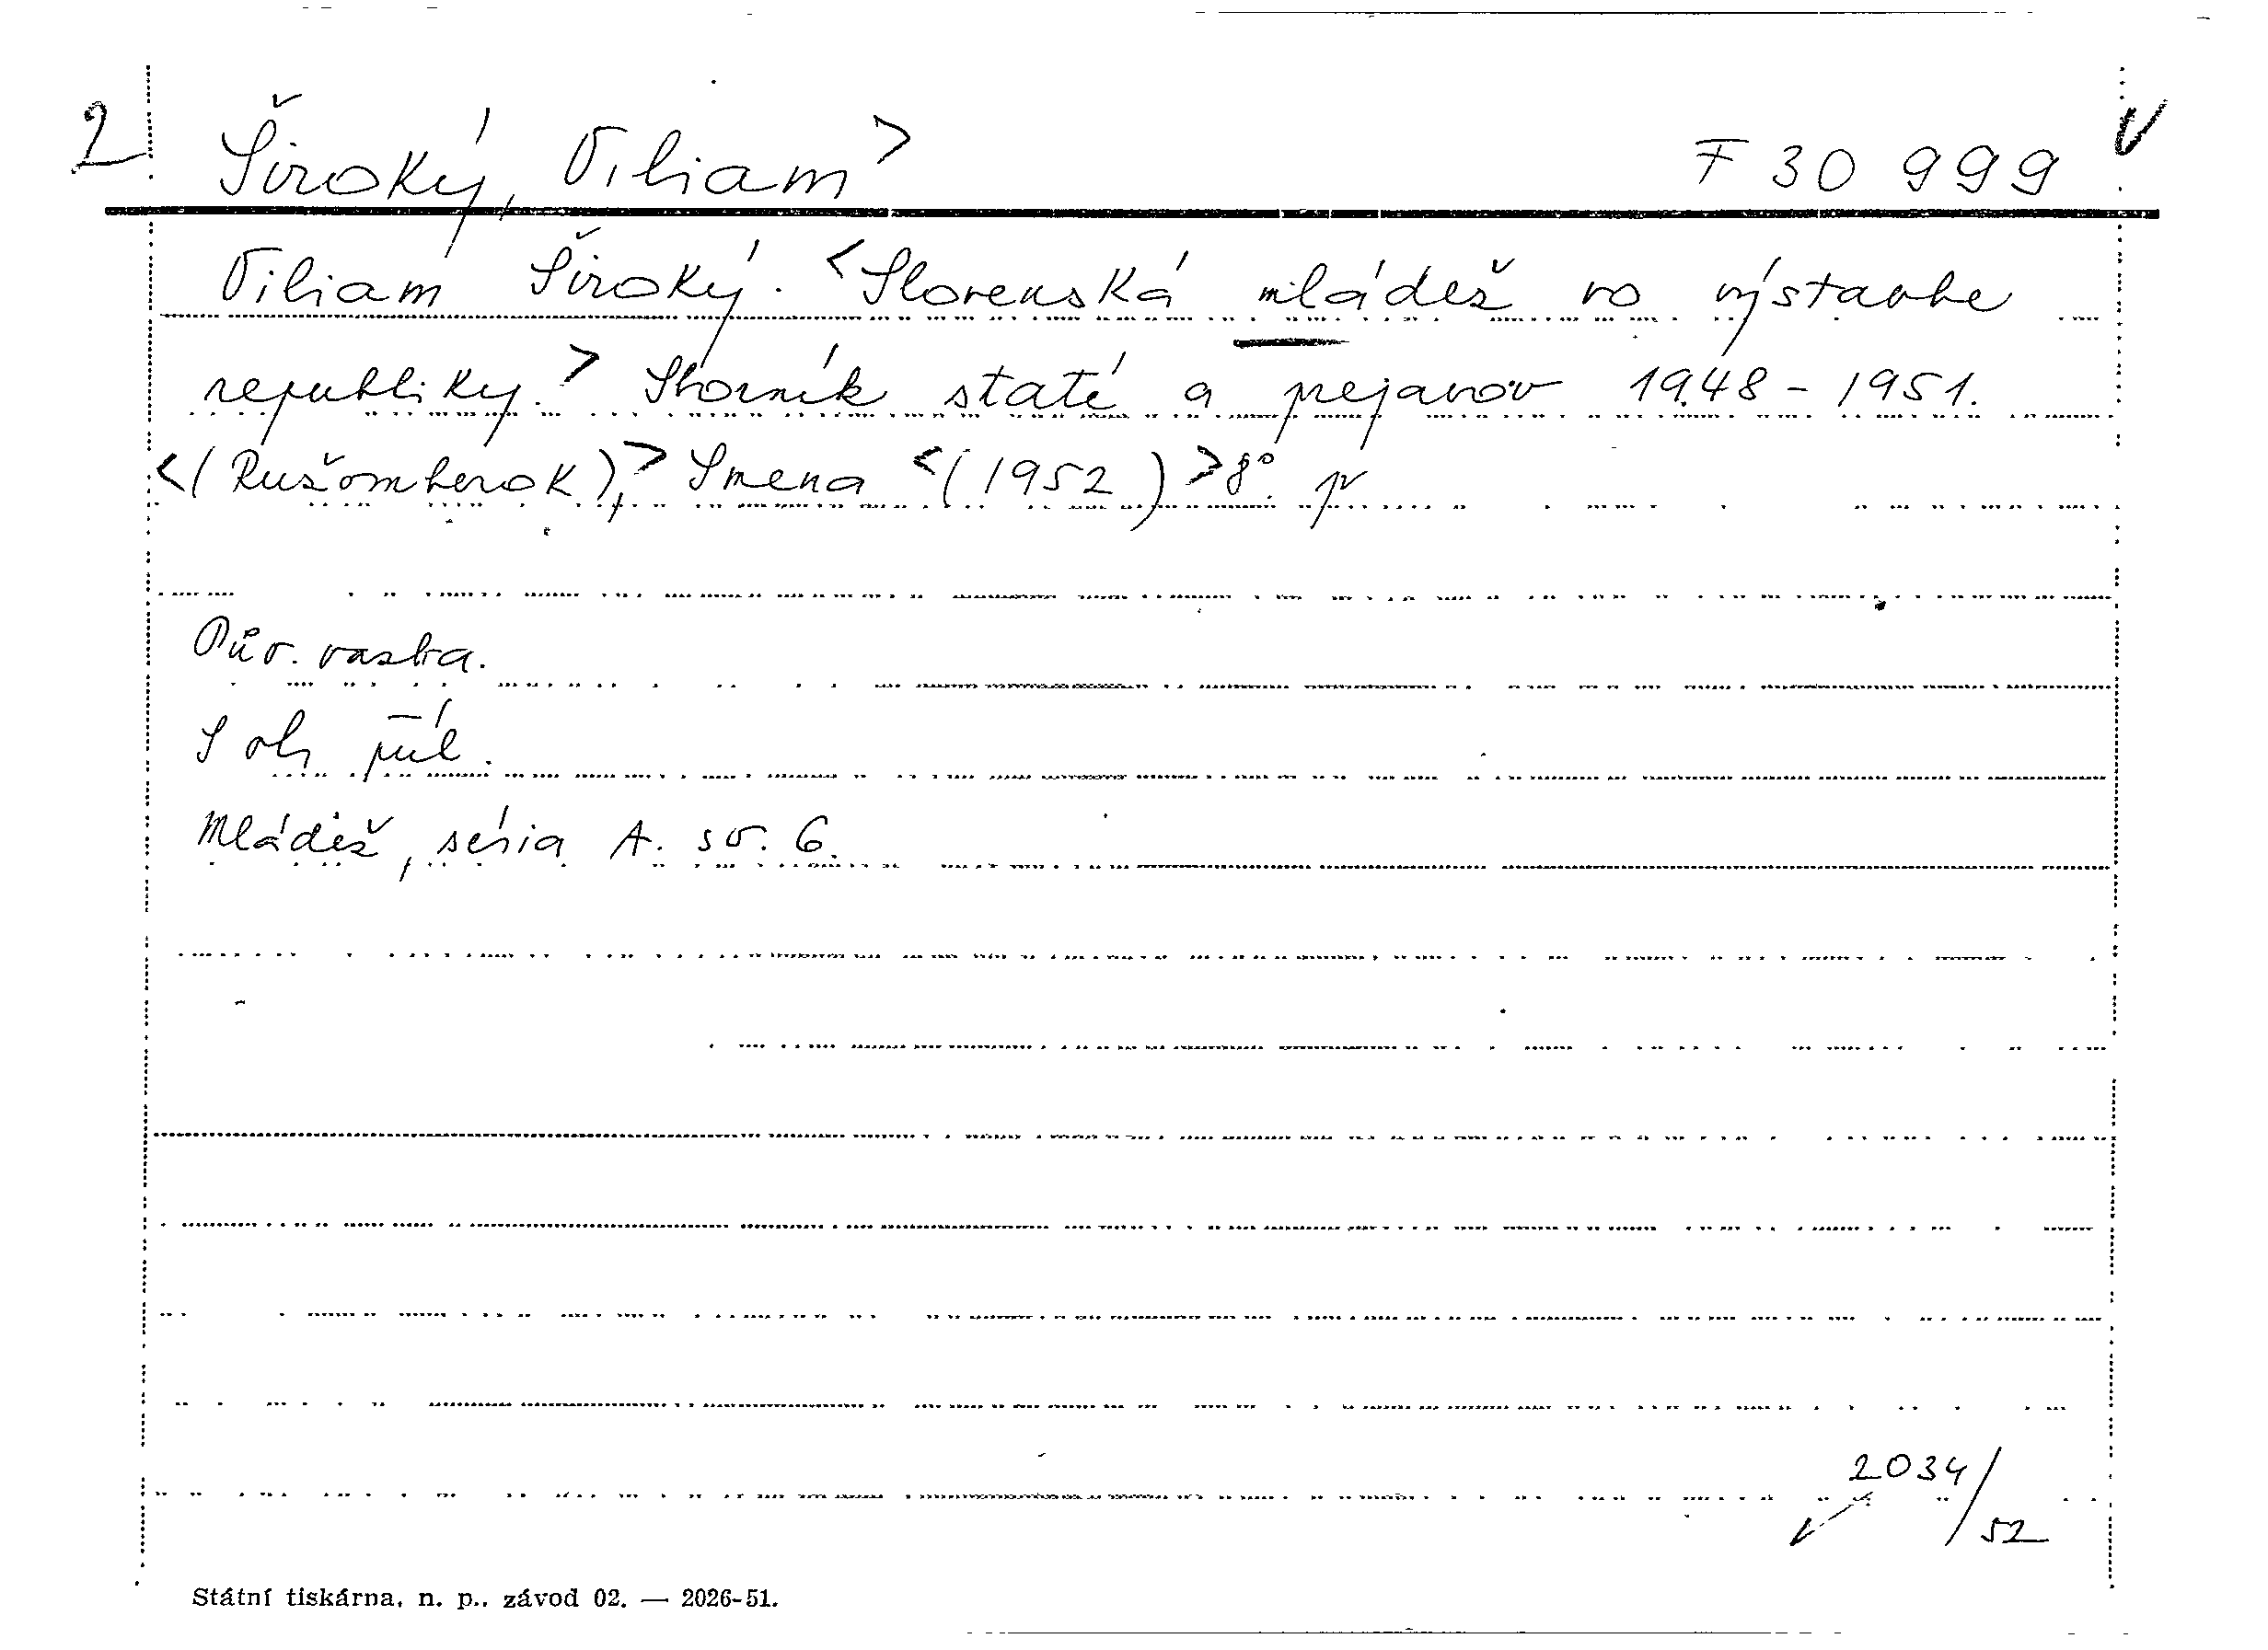 2 Široký, Viliam> F 30 999 V
Viliam Široký. <Slovenská mládež vo výstavbe
republiky.> Sborník staté a prejavov 1948-1951.
<(Rušomberok),> Smena <(1952)>8°. p
Pův. vazba.
S ob příl.
Mládež, séria A. sv. 6.
2034/52
Státní tiskárna, n. p., závod 02. — 2026-51.